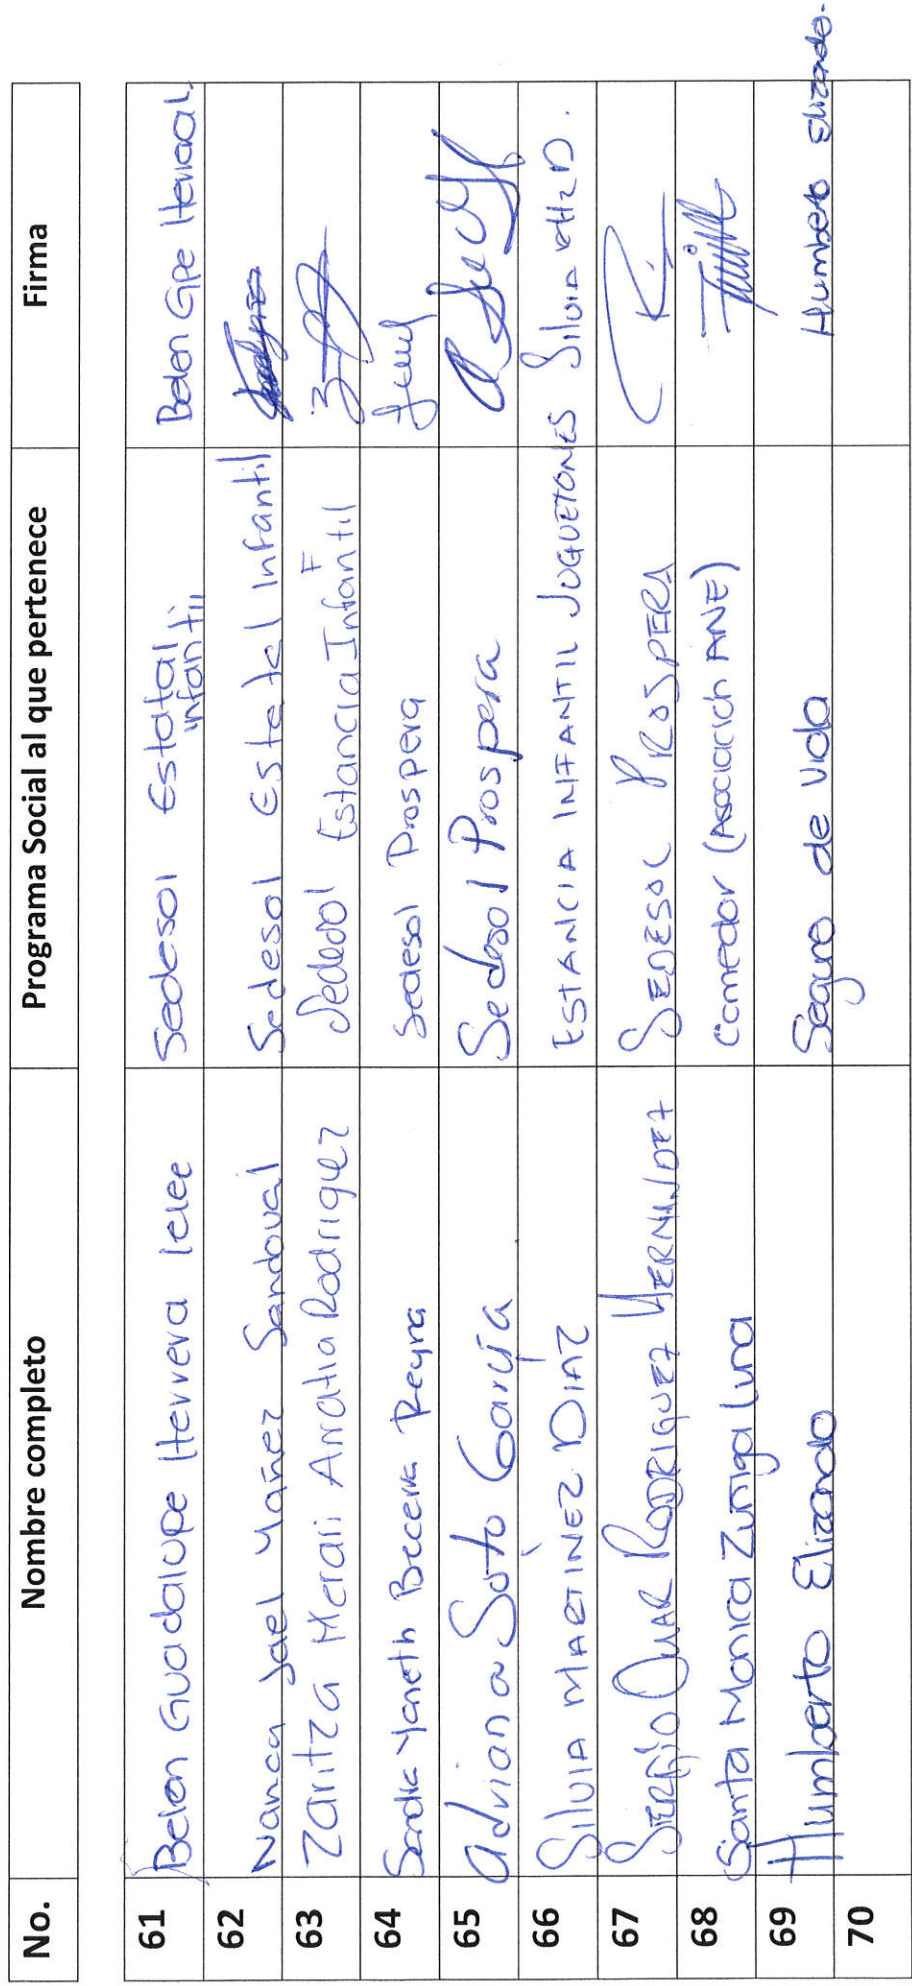 No. Nombre completo Programa Social al que pertenece Firma
61 Belen Guadalupe Herrera Sedesol Estatal infantil Belen Gpe
62 Nancy Jael Yañez Sandoval Sedesol Estatal Infantil
63 Zaritza Merari Arratia Rodriguez Sedesol Estancia Infantil
64 Sandra Yaneth Becerra Reyna Sedesol Prospera
65 Adriana Soto García Sedesol Prospera
66 SILVIA MARTINEZ DIAZ ESTANCIA INFANTIL JUGUETONES SILVIA MTZ D.
67 SERGIO OMAR RODRIGUEZ HERNANDEZ SEDESOL PROSPERA
68 Santa Monica Zuñiga Luna Comedor (Asociacion ANE)
69 Humberto Elizondo Seguro de vida Humberto Elizondo.
70